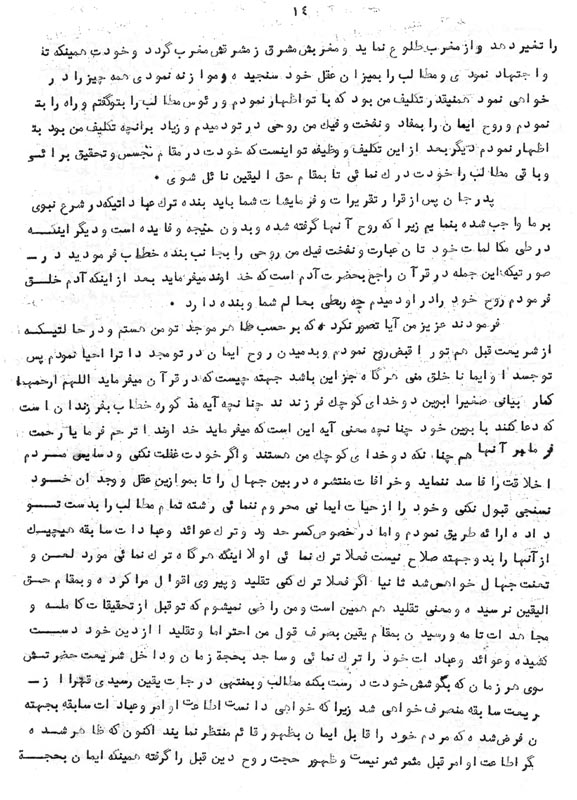 ١٤
را تغیر دهد و از مغرب طلوع نماید و مغربش مشرق ز مشرقش مغرب گردد و خودت همینکه تف
و اجتهاد نمودی و مطالب را بمیزان عقل خود سنجیده و موازنه نمودی همه چیز را در
خواهی نمود همینقدر تکلیف من بود که با تو اظهار نمودم و رئوس مطالب را بتو گفتم و راه را بتو
نمودم و روح ایمان را بمفاد و نفخت و فیك من روحی در تو دمیدم و زیاد بر آنچه تکلیف من بود بت
اظهار نمودم دیگر بعد از این تکلیف و وظیفه تو اینست که خودت در مقام تجسس و تحقیق بر ائی
و باقی مطالب را خودت درك نمائی تا بمقام حق الیقین نائل شوی •
پدر جان پس از قرار تقریرات و فرمایشات شما باید بنده ترك عباداتیکه در شرع نبوی
بر ما واجب شده بنمایم زیرا که روح آنها گرفته شده و بدون نتیجه و فایده است و دیگر اینکه
در طی مکالمات خود تان عبارت و نفخت فیك من روحی را بجانب بنده خطاب فرمودید در ـ
صورتیکه این جمله در قرآن راجع بحضرت آدم است که خداوند میفرماید بعد از اینکه آدم خلق
فرمودم روح خود را در او دمیدم چه ربطی بعالم شما و بنده دارد •
فرمودند عزیز من آیا تصور نکرده که بر حسب ظاهر موجد تو من هستم و در حالتیکه
از شریعت قبل هم تو را قبض روح نمودم و بدمیدن روح ایمان در تو مجددا ترا احیا نمودم پس
تو جسدا و ایمانا خلق منی هرگاه جز این باشد جهته چیست که در قرآن میفرماید اللهم ارحمهما
کما ربیانی صغیرا ابوین دو خدای کوچك فرزندند چنانچه آیه مذکوره خطاب بفرزندان است
که دعا کنند با بوین خود چنانچه معنی آیه این است که میفرماید خداوندا ترحم فرما یا رحمت
فرما بر آنها هم چنانکه دو خدای کوچك من هستند و اگر خودت غفلت نکنی و دسایس مردم
اخلاقت را فاسد ننماید و خرافات منتشره در بین جهال را تا بموازین عقل و وجدان خود
نسنجی قبول نکنی و خود را از حیات ایمانی محروم ننمائی رشته تمام مطالب را بدست تو
داده ارائه طریق نمودم و اما در خصوص کسر حدود و ترك عوائد و عبادات سابقه هیچیك
از آنها را بدو جهته صلاح نیست فعلا ترك نمائی اولا اینکه هر گاه ترك نمائی مورد لعن و
تعنت جهال خواهی شد ثانیا اگر فعلا ترك کنی تقلید و پیروی اقوال مرا کرده و بمقام حق
الیقین نرسیده و معنی تقلید هم همین است و من راضی نمیشوم که تو قبل از تحقیقات کامله و
مجاهدات تامه و رسیدن بمقام یقین بصرف قول من احتراما و تقلیدا از دین خود دست
کشیده و عوائد و عبادات خود را ترك نمائی و ساجد بحجة زمان و داخل شریعت حضرتش
شوی هر زمان که بگوشش خودت درست بکنه مطالب و بمنتهی درجات یقین رسیدی قهرا از ـ
ریعت سابقه منصرف خواهی شد زیرا که خواهی دانست اطاعت اوامر و عبادات سابقه بجهته
ن فرض شده که مردم خود را قابل ایمان بظهور قائم منتظر نمایند اکنون که ظاهر شده
گر اطاعت اوامر قبل مثمر ثمر نیست و ظهور حجت روح دین قبل را گرفته همینکه ایمان بحجة